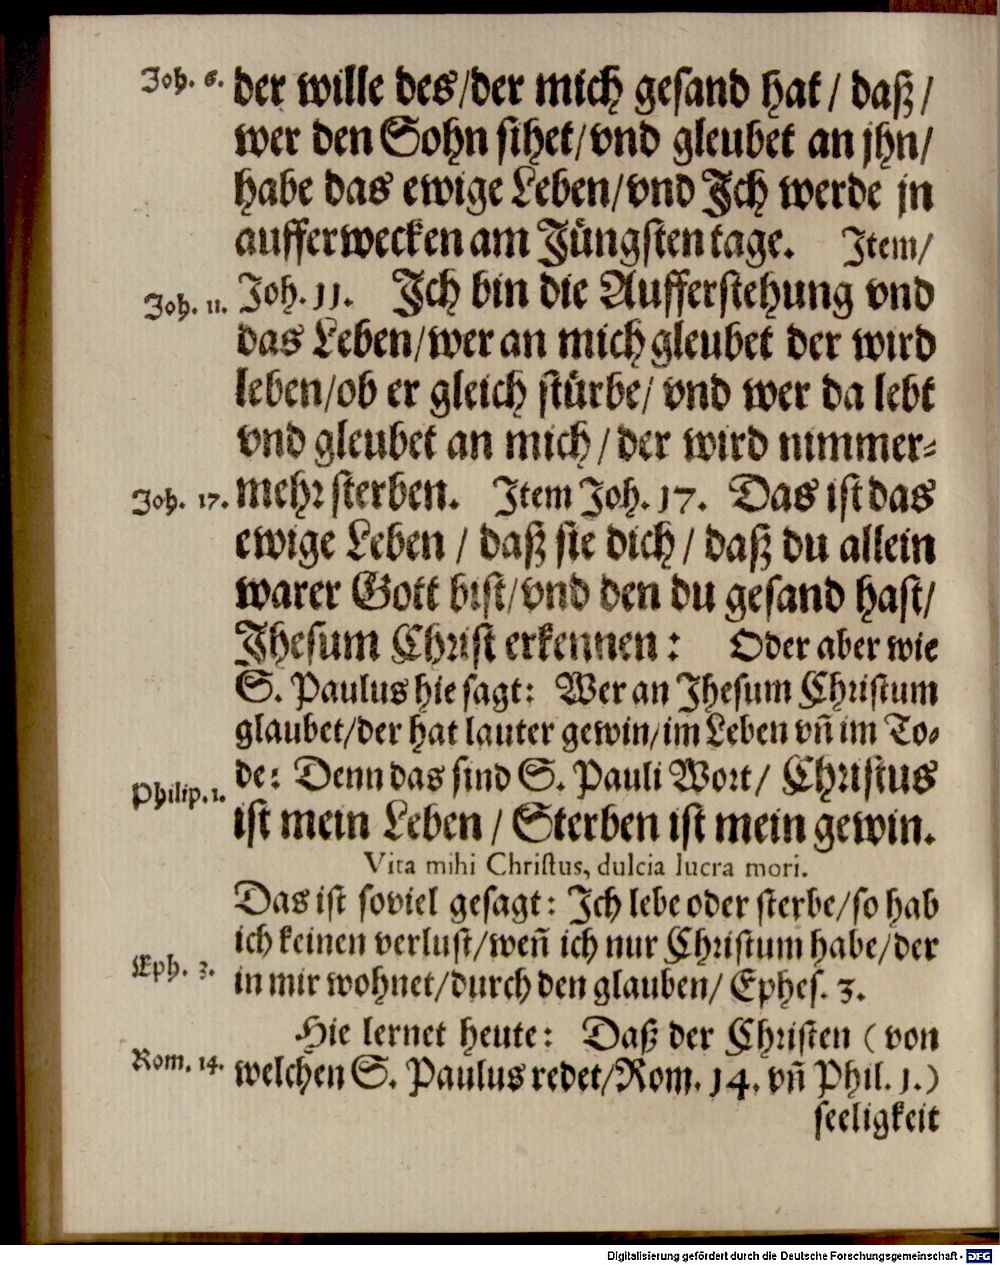 Joh. 6. der wille des/der mich gesand hat / daß /
wer den Sohn sihet/vnd gleubet an jhn/
habe das ewige Leben/vnd Jch werde jn
aufferwecken am Jüngsten tage. Jtem/
Joh. 11. Joh. 11. Jch bin die Aufferstehung vnd
das Leben/wer an mich gleubet der wird
leben/ob er gleich stürbe/ vnd wer da lebt
vnd gleubet an mich / der wird nimmer⸗
Joh. 17. mehr sterben. Jtem Joh. 17. Das ist das
ewige Leben / daß sie dich / daß du allein
warer Gott bist/vnd den du gesand hast/
Jhesum Christ erkennen : Oder aber wie
S. Paulus hie sagt: Wer an Jhesum Christum
glaubet/der hat lauter gewin/im Leben vñ im To⸗
Philip. 1. de: Denn das sind S. Pauli Wort/ Christus
ist mein Leben / Sterben ist mein gewin.
Vita mihi Christus, dulcia lucra mori.
Das ist soviel gesagt: Jch lebe oder sterbe/so hab
ich keinen verlust/weñ ich nur Christum habe/der
Eph. 3. in mir wohnet/durch den glauben/ Ephes. 3.
Hie lernet heute: Daß der Christen ( von
Rom. 14. welchen S. Paulus redet/Rom. 14. vñ Phil. 1.)
seeligkeit
Digitalisierung gefördert durch die Deutsche Forschungsgemeinschaft - DFG